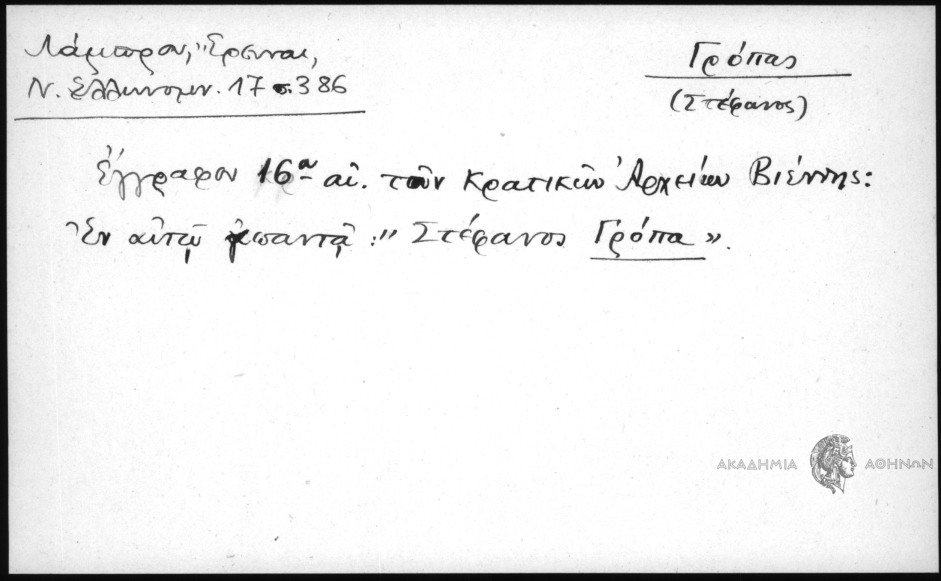 Λάμπρου, Ἔρευναι,
Ν. Ἑλληνομν. 17 σ. 386
Γρόπας
(Στέφανος)
Ἔγγραφον 16ου αἰ. τῶν Κρατικῶν Ἀρχείων Βιέννης:
Ἐν αὐτῷ ἀπαντᾷ: "Στέφανος Γρόπα".
ΑΚΑΔΗΜΙΑ ΑΘΗΝΩΝ